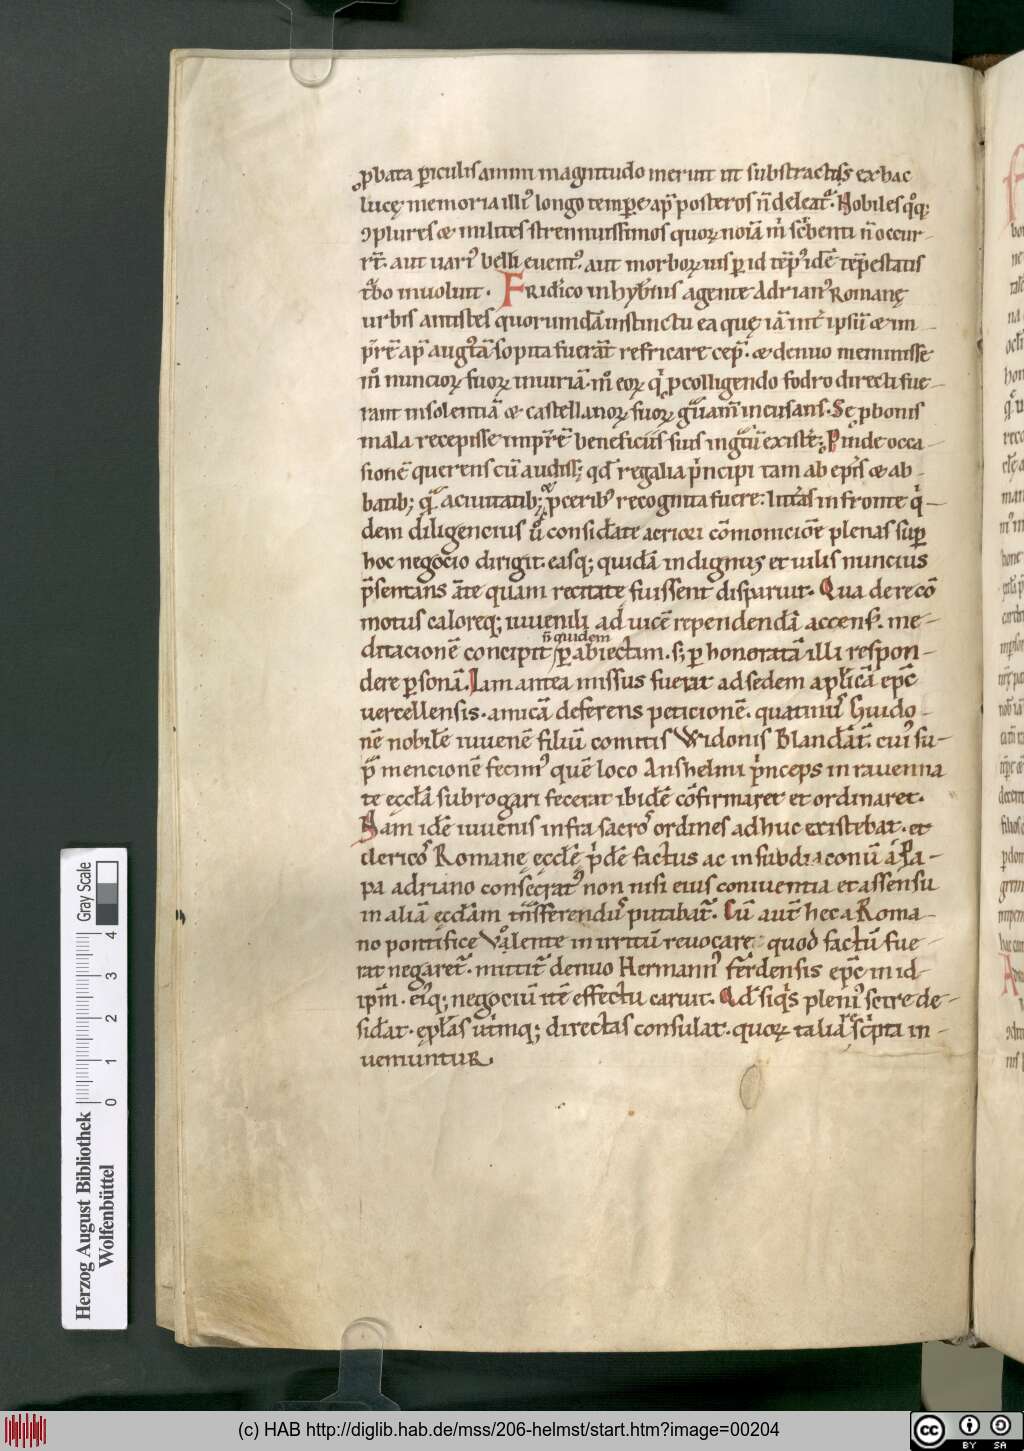 ꝓbata ꝑiculis animi magnitudo meruit ut substractis ex hac
lucę memoria illiꝰ longo tempore apͩ posteros ñ deleatᷣ. Nobiles qͦq;
ꝯplures & milites strennuissimos quoꝝ noīa m̄ sc̄benti ñ occur-
rt̄. aut uariꝰ belli euentꝰ. aut morboꝝ uis ꝑ id tēpꝰ idē tēpestatis
tᷣbo inuoluit. Fridico in hyb̄nis agente Adrianꝰ Romanę
urbis antistes quorundā instinctu ea quę iā int̄ ipsū & im-
p̄rē apͩ augᷤtā sopita fuerāt refricare cep̄. & denuo meminisse
m̊ nuncioꝝ suoꝝ iniuriā. m̊ eoꝝ qͥ ꝓ colligendo fodro directi fue-
rant insolentiā & castellanoꝝ suoꝝ gͣuam̄ incusans. Se ꝓ bonis
mala recepisse imprē beneficiis suis ingͣtū existēs; Proinde occa-
sionē querens cū audiss; qd̄ regalia pͥncipi tam ab epīs & ab-
batib; qͣ a ciuitatib; & ꝓceribꝰ recognita fuere: litt̄as in fronte qͥ-
dem diligencius ů considate acriori cōmonicioē plenas suꝑ
hoc negocio dirigit. easq; quidā indignꝰ et uilis nuncius
p̄sentans āte quam recitate fuissent disparuit. Qua de re cō
motus calore q; iuuenili ad uicē rependendā accensꝰ. me-
ditacionē concipit ñ quidem ꝑ abiectam. s; ꝑ honoratā illi respon-
dere ꝑsonā. Iam antea missus fuerat ad sedem aplicā epc̄
uercellensis. amicā deferens peticionē. quatinꝰ Guido-
nē nobilē iuuenē filiū comitis Widonis Blandāt̄. cuiꝰ su-
p̄ mencionē fecimꝰ quē loco Anshelmi pͥnceps in rauenna
te ęccłā subrogari fecerat ibidē cōfirmaret et ordinaret.
Nam idē iuuenis infra sacroˢ ordines adhuc existebat. et
clericꝰ Romanę ęccłę pͥdē factus ac in subdiaconū a Pa-
pa adriano consecratꝰ non nisi eius conniuentia et assensu
in aliā ęccłam tnͣsferendꝰ putabatᷣ. Cū aut̄ hec a Roma-
no pontifice ůalente in irritū reuocare quod factū fue-
rat negaretᷣ. mittitᷣ denuo Hermannꝰ ferdensis epc̄ in id
ipm̄. eiꝰq; negociū itē effectu caruit. Qd̄ siqͥs pleniꝰ scire de-
sidat. ep̄las utͥmq; directas consulat. quoꝝ talia rͤscͥpta in-
ueniuntur
Herzog August Bibliothek
Wolfenbüttel
Gray Scale
0 1 2 3 4
(c) HAB http://diglib.hab.de/mss/206-helmst/start.htm?image=00204
cc BY SA